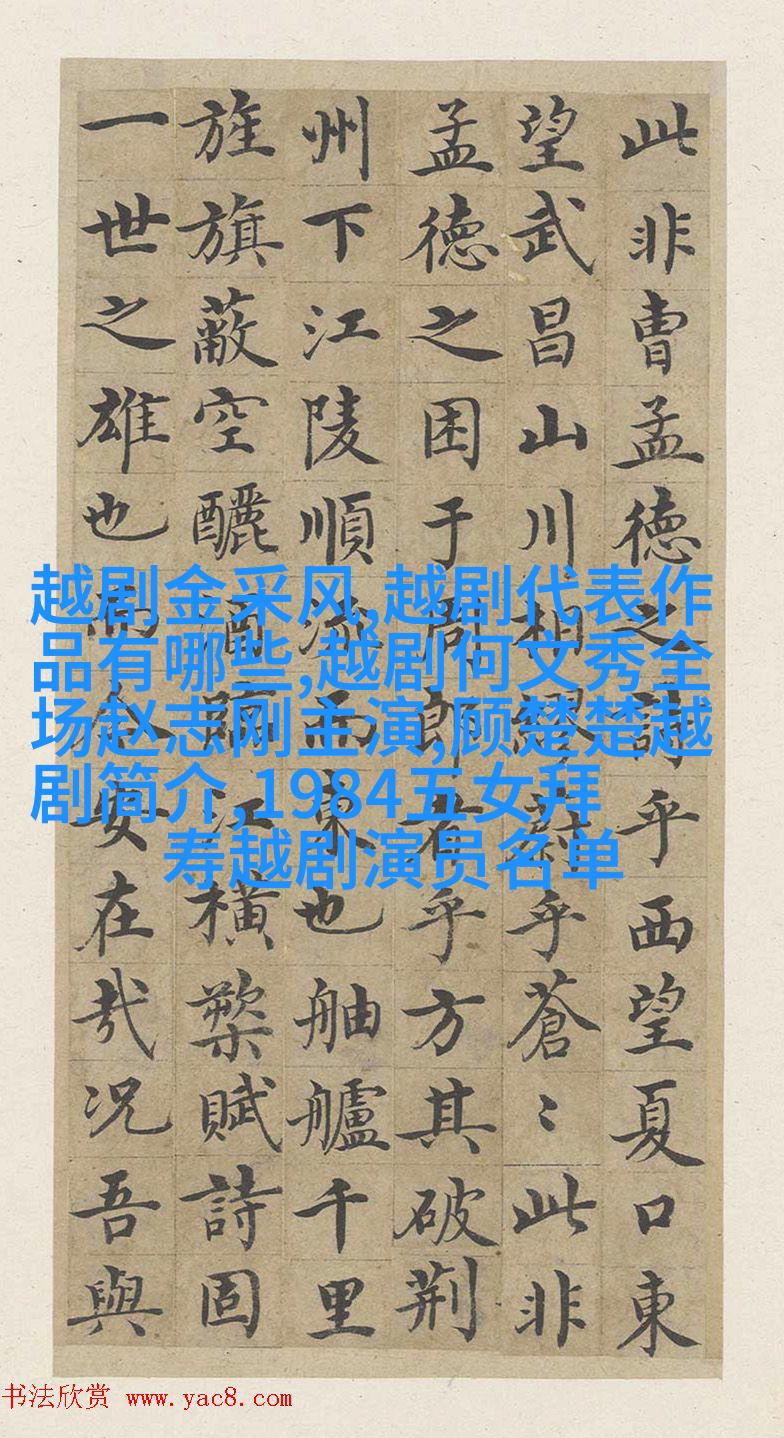 此非曹孟德之詩乎西望夏口東
望武昌山川相繆乎蒼〻此非
孟德之困于周郎者乎方其破荆
州下江陵順流而東也舳艫千里
旌旗蔽空釃酒臨江橫槊賦詩固
一世之雄也而今安在哉況吾與
越剧金采风,越剧代表作
品有哪些,越剧何文秀全
场赵志刚主演,顾楚楚越
剧简介,1984五女拜
寿越剧演员名单
书法欣赏 www.yac8.com